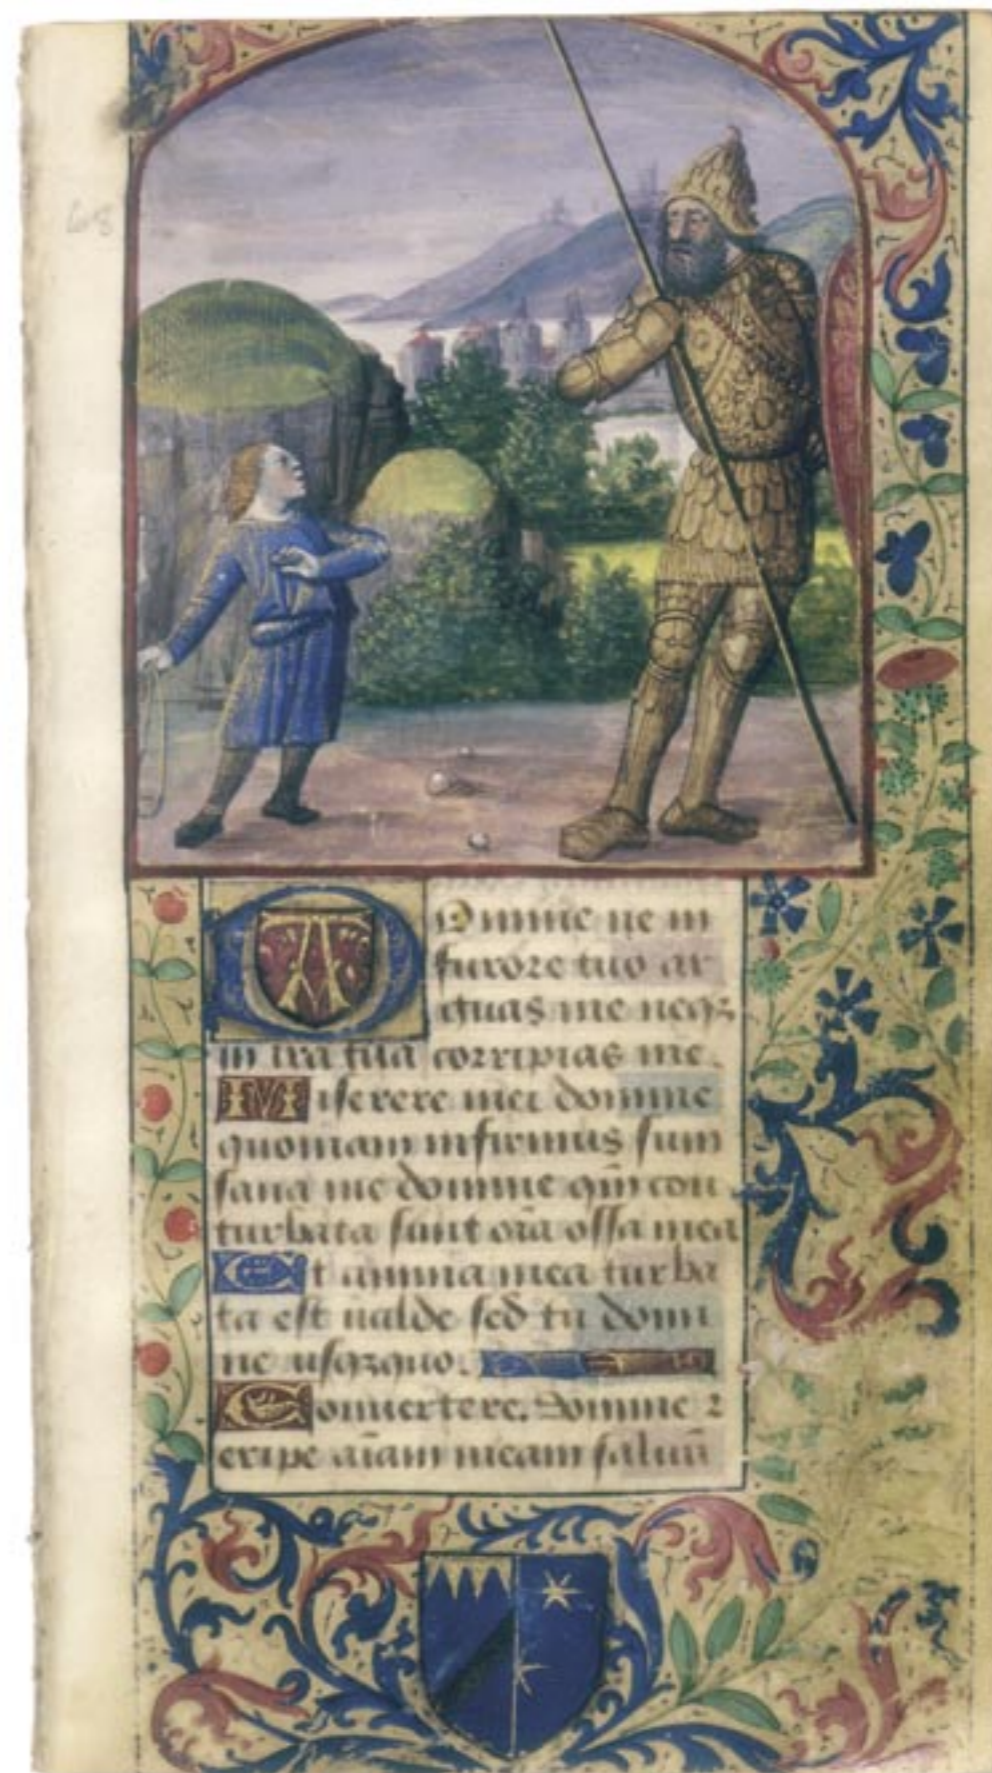 Domine ne in
furore tuo ar
guas me neqz
in ira tua corripias me.
Miserere mei domine
quoniam infirmus sum
sana me domine qm̄ con
turbata sunt oīa ossa mea
Et anima mea turba
ta est ualde sed tu domi
ne usqzquo.
Conuertere. Domine ⁊
eripe aīam meam saluū